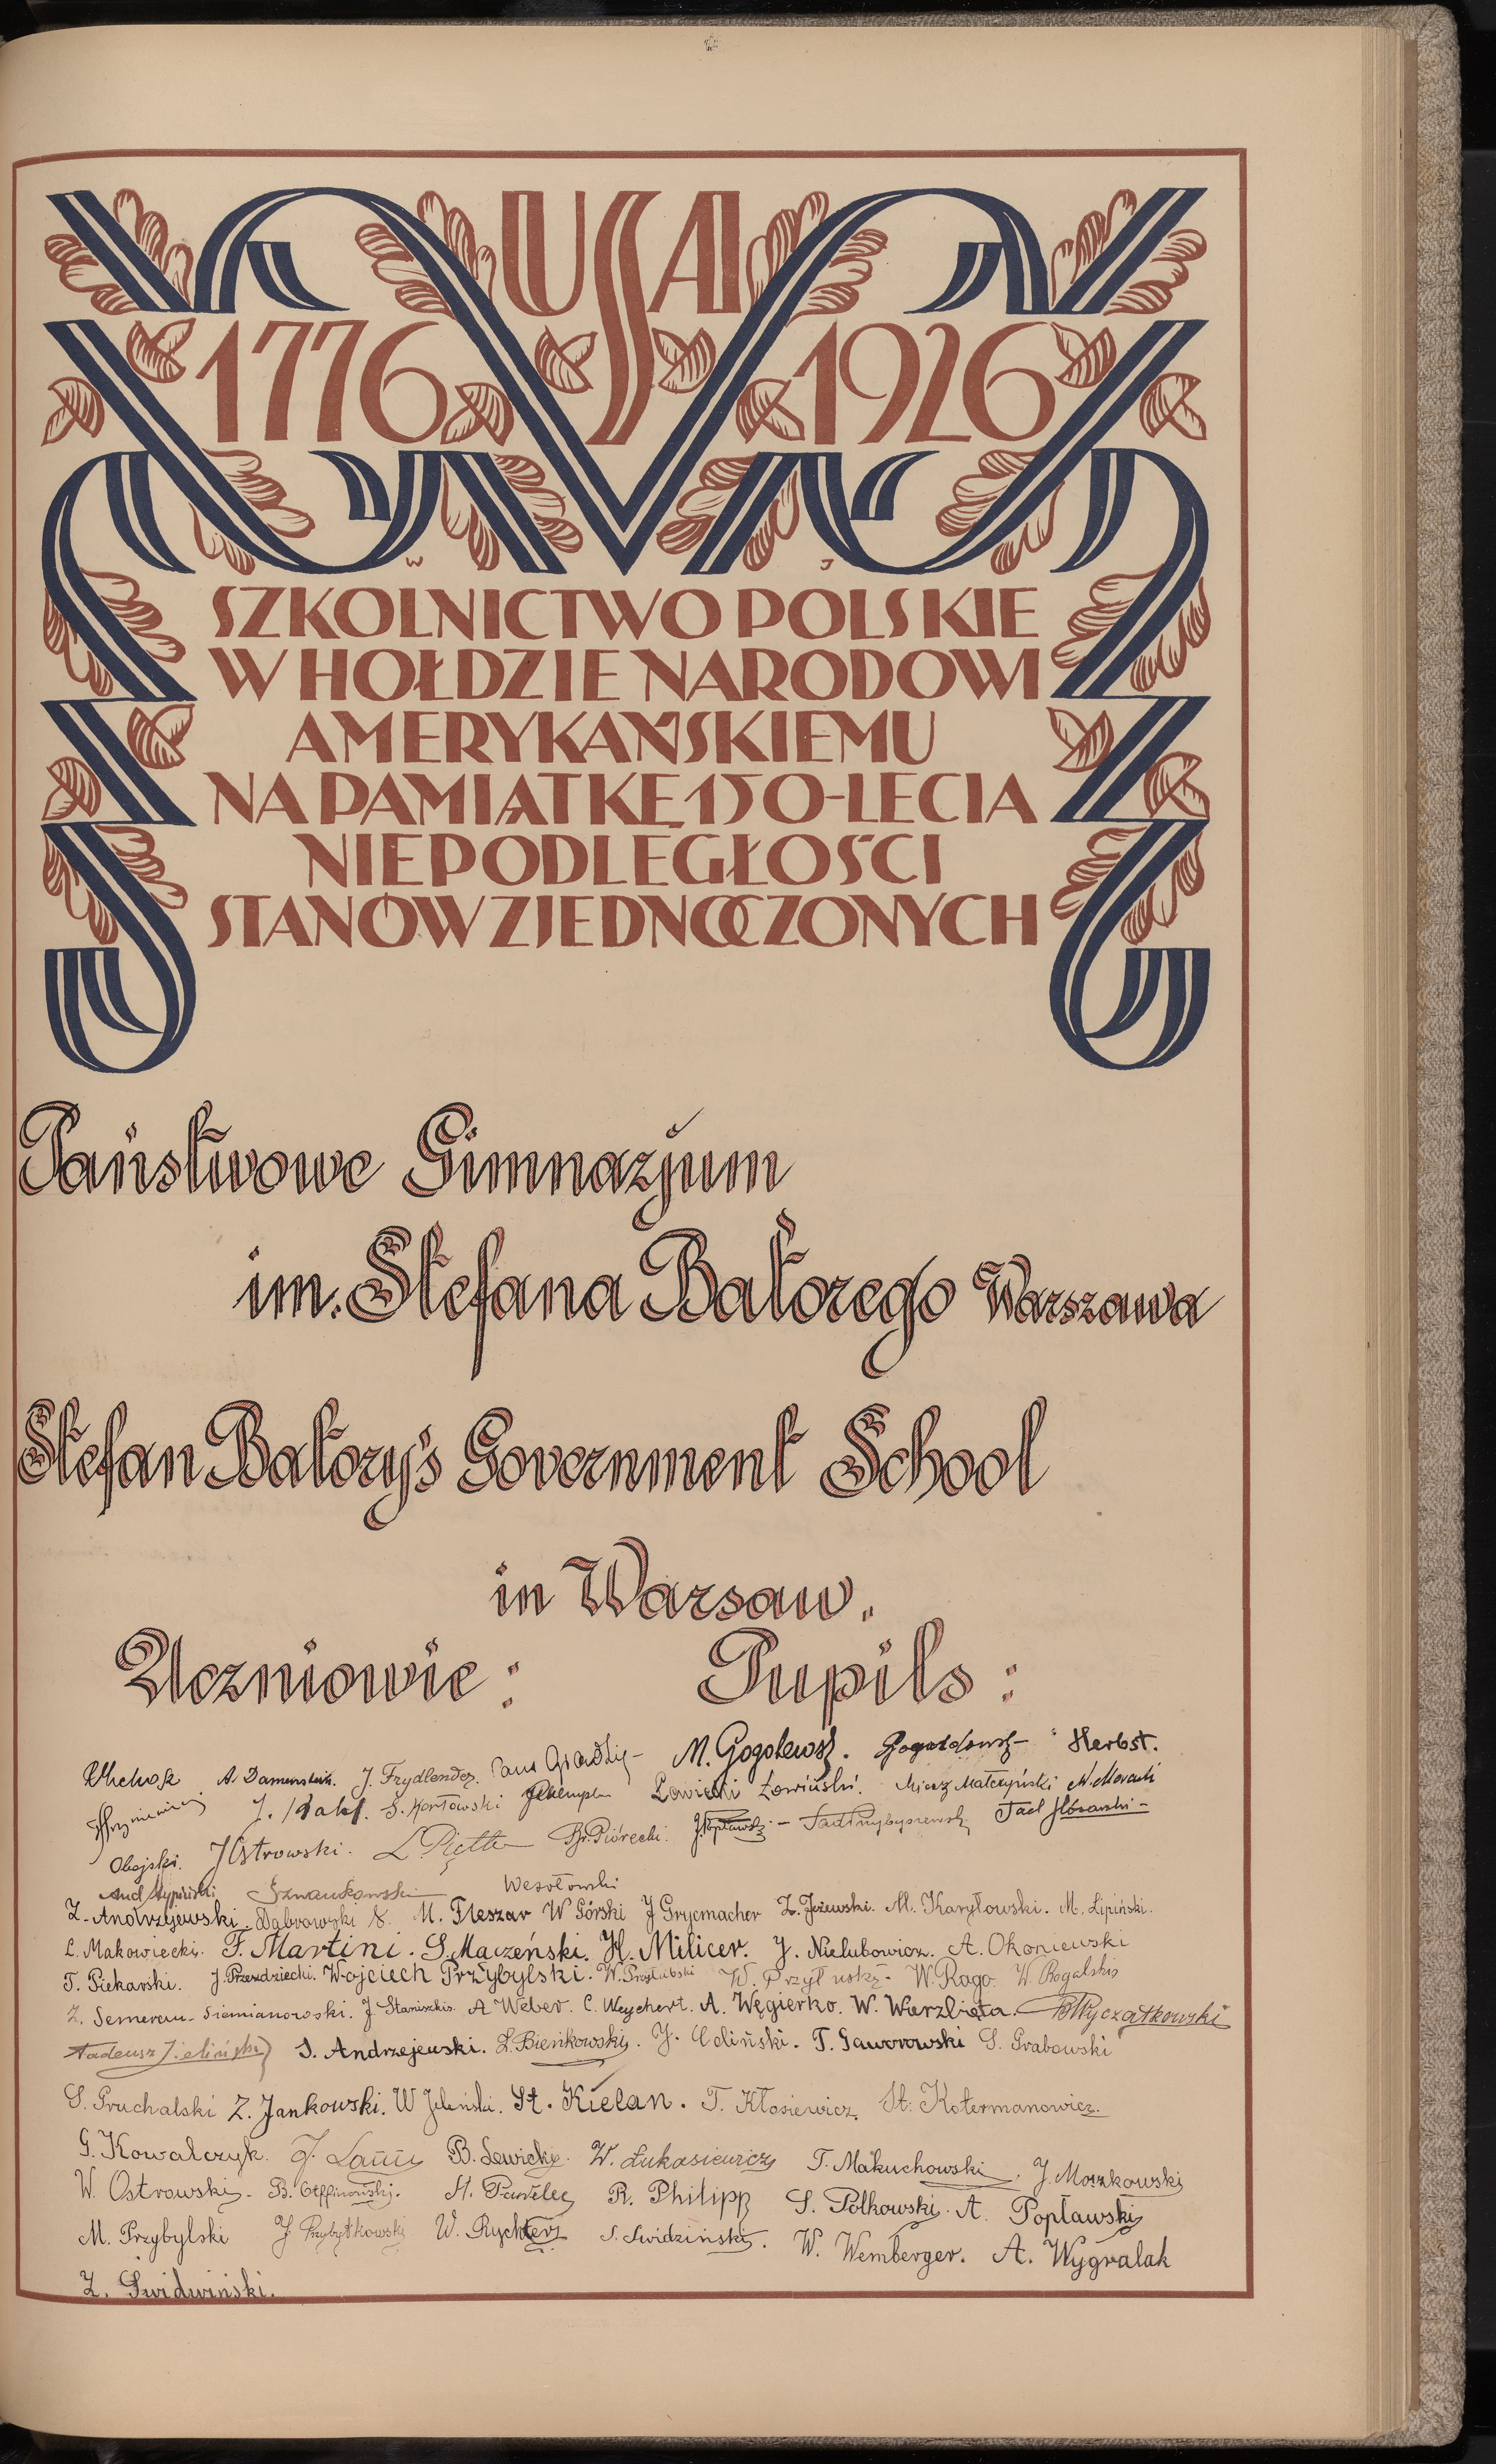 USA
1776 1926
W J
SZKOLNICTWO POLSKIE
W HOŁDZIE NARODOWI
AMERYKAŃSKIEMU
NA PAMIĄTKĘ 150-LECIA
NIEPODLEGŁOŚCI
STANÓW ZJEDNOCZONYCH
Państwowe Gimnazjum
im. Stefana Batorego Warszawa
Stefan Batory's Government School
in Warsaw.
Uczniowie: Pupils:
J. Frydlender. M. Gogolewski. Herbst.
S. Kortowski Łowicki Łowiński. Miecz Małczyński
Obojski. J Ostrowski. Br. Piórecki. Tad Przybyszewski
Szwankowski Wesołowski
Z. Andrzejewski. Dąbrowski M. Fleszar W Górski J Grycmacher Z. Jeżewski. M. Karyłowski. M. Lipiński.
L. Makowiecki. F. Martini. S. Maczeński. H. Milicer. J. Nielubowicz. A. Okoniewski
T. Piekarski. J. Przezdziecki. Wojciech Przybylski. W. Przyłuski. W. Rago. W. Rogalski
Z. Semerau-Siemianowski. J Staniszkis. A Weber. C. Weychert. A. Węgierko. W. Wierzbięta. B Wyczałkowski
Tadeusz Zieliński S. Andrzejewski. L. Bieńkowski. J. Celiński. T. Gaworowski S. Grabowski
S. Gruchalski Z. Jankowski. W Jeleński. St. Kielan. T. Kłosiewicz. St. Kotermanowicz.
G. Kowalczyk. B. Lewicki. W. Łukasiewicz T. Makuchowski. J. Moszkowski
W. Ostrowski. B. Otffinowski. St. Pawlee R. Philipp S. Polkowski. A. Popławski
M. Przybylski J Przybytkowski W. Rychter S. Swidziński. W. Wemberger. A. Wygralak
Z. Świdwiński.